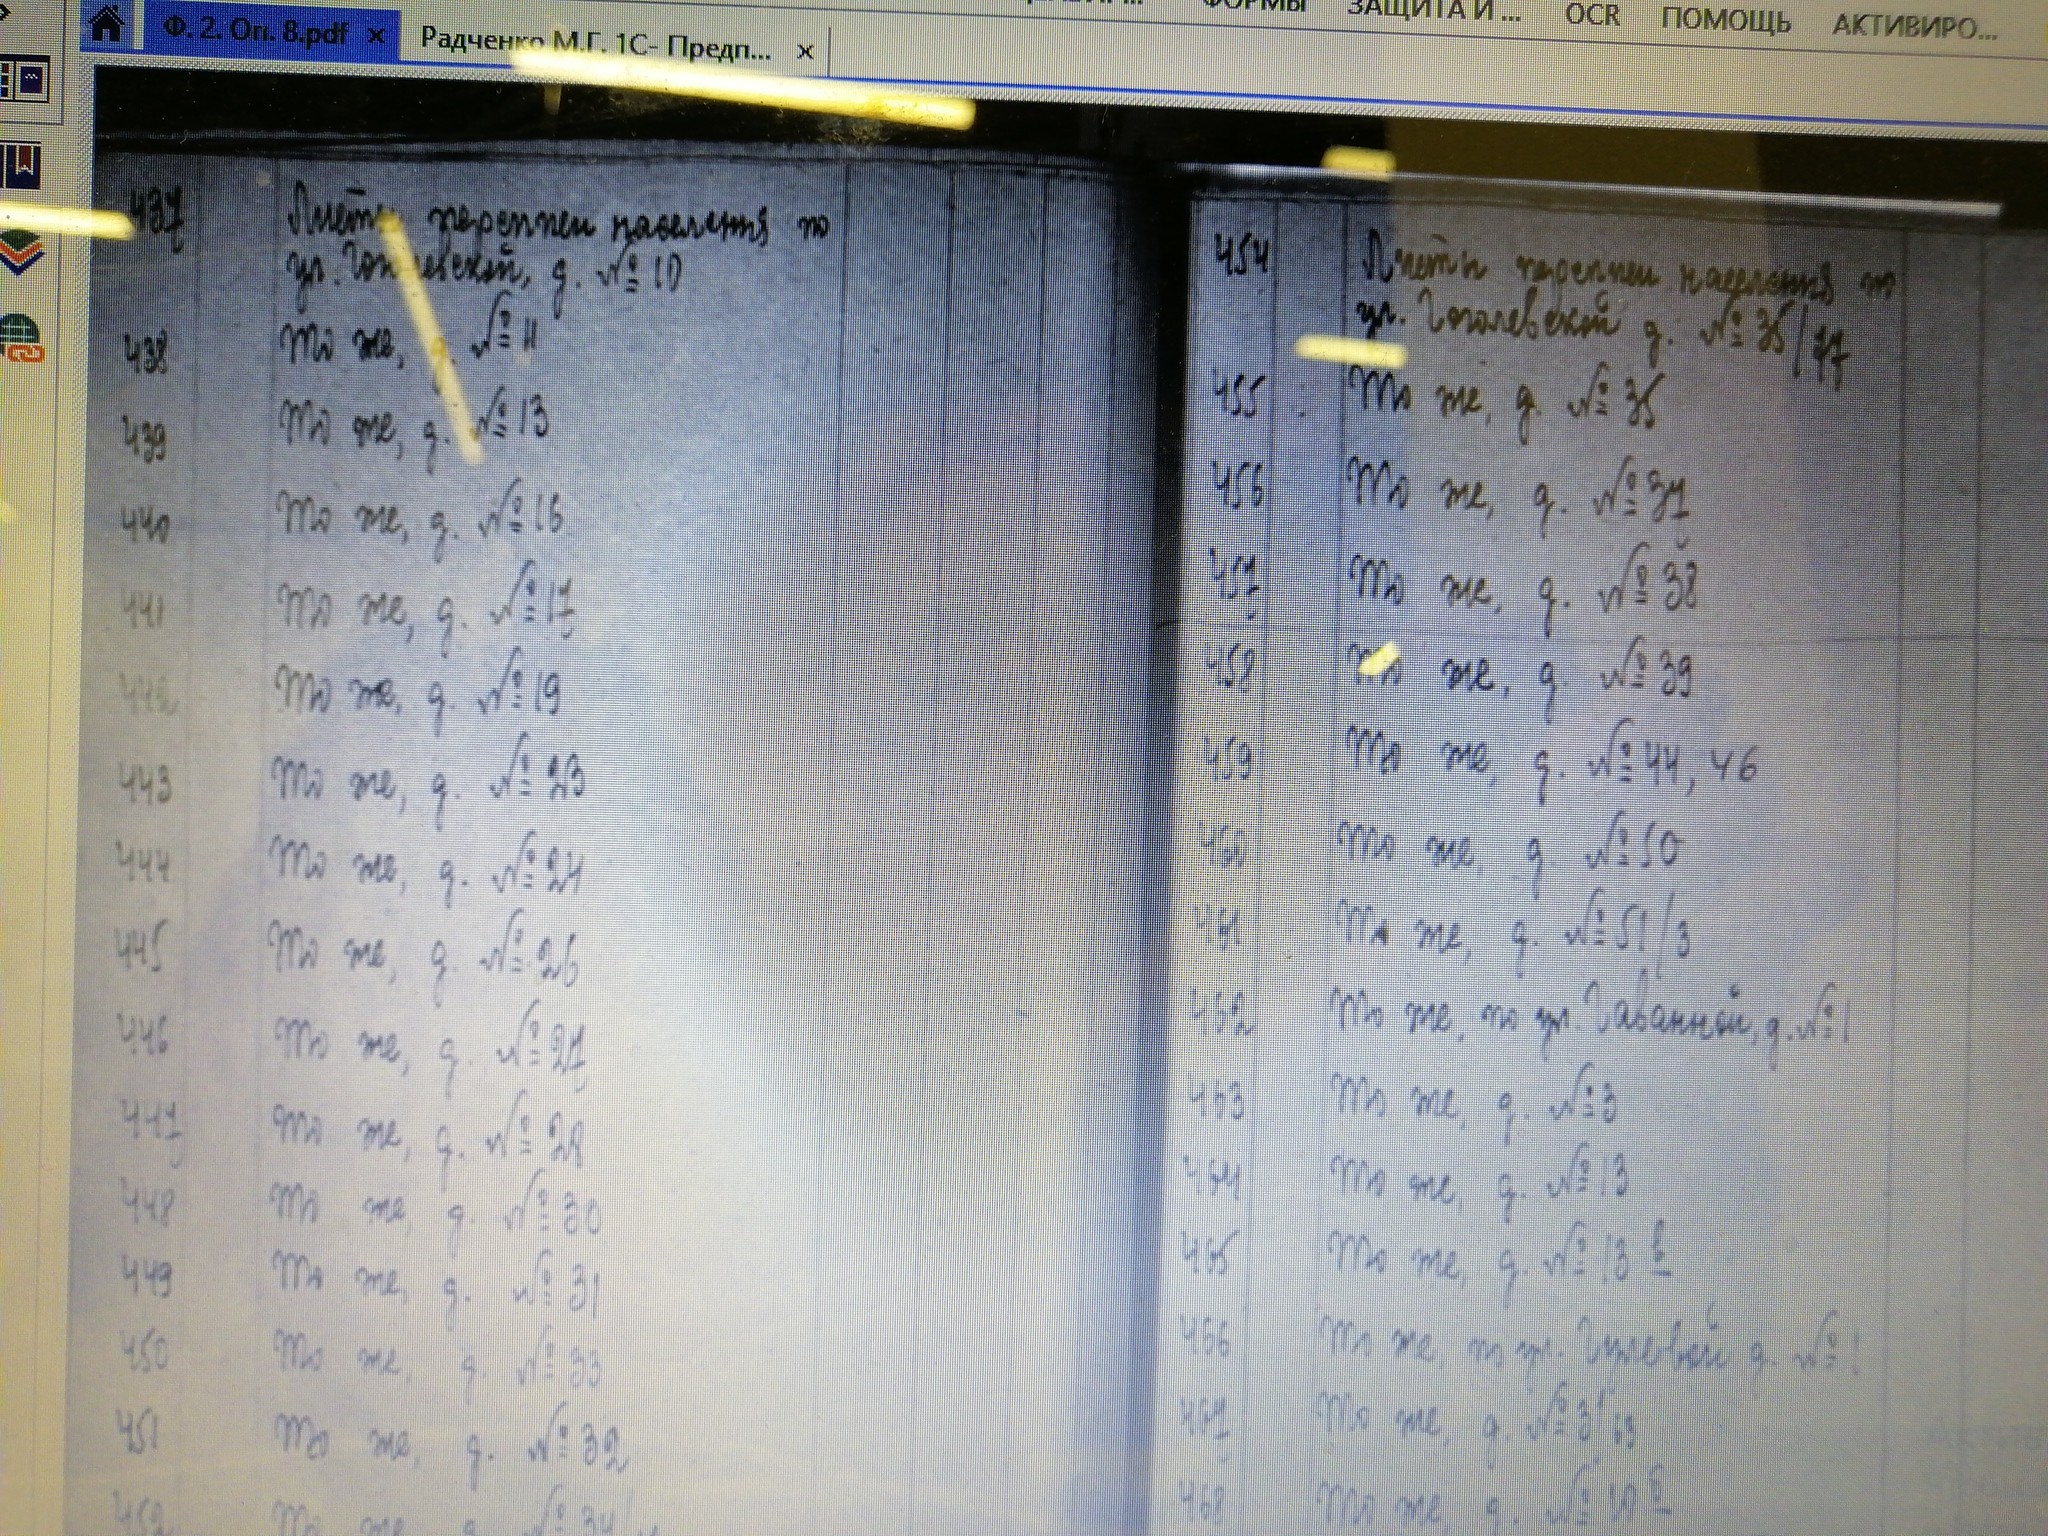 ФОРМЫ
ЗАЩИТА И ...
OCR
ПОМОЩЬ
АКТИВИРО...
Ф. 2. Оп. 8.pdf ×
Радченко М.Г. 1С- Предп... ×
437 Листы переписи населения по
ул. Гоголевской, д. № 10
438 То же, д. № 11
439 То же, д. № 13
440 То же, д. № 16
441 То же, д. № 17
442 То же, д. № 19
443 То же, д. № 23
444 То же, д. № 24
445 То же, д. № 26
446 То же, д. № 27
447 То же, д. № 28
448 То же, д. № 30
449 То же, д. № 31
450 То же, д. № 33
451 То же, д. № 32
452 То же, д. № 34
454 Листы переписи населения по
ул. Гоголевской д. № 35/37
455 То же, д. № 35
456 То же, д. № 37
457 То же, д. № 38
458 То же, д. № 39
459 То же, д. № 44, 46
460 То же, д. № 50
461 То же, д. № 51/3
462 То же, по ул. Гаванной, д. № 1
463 То же, д. № 3
464 То же, д. № 13
465 То же, д. № 13
466 То же, по ул. Гулевой д. № 1
467 То же, д. №
468 То же, д. № 10